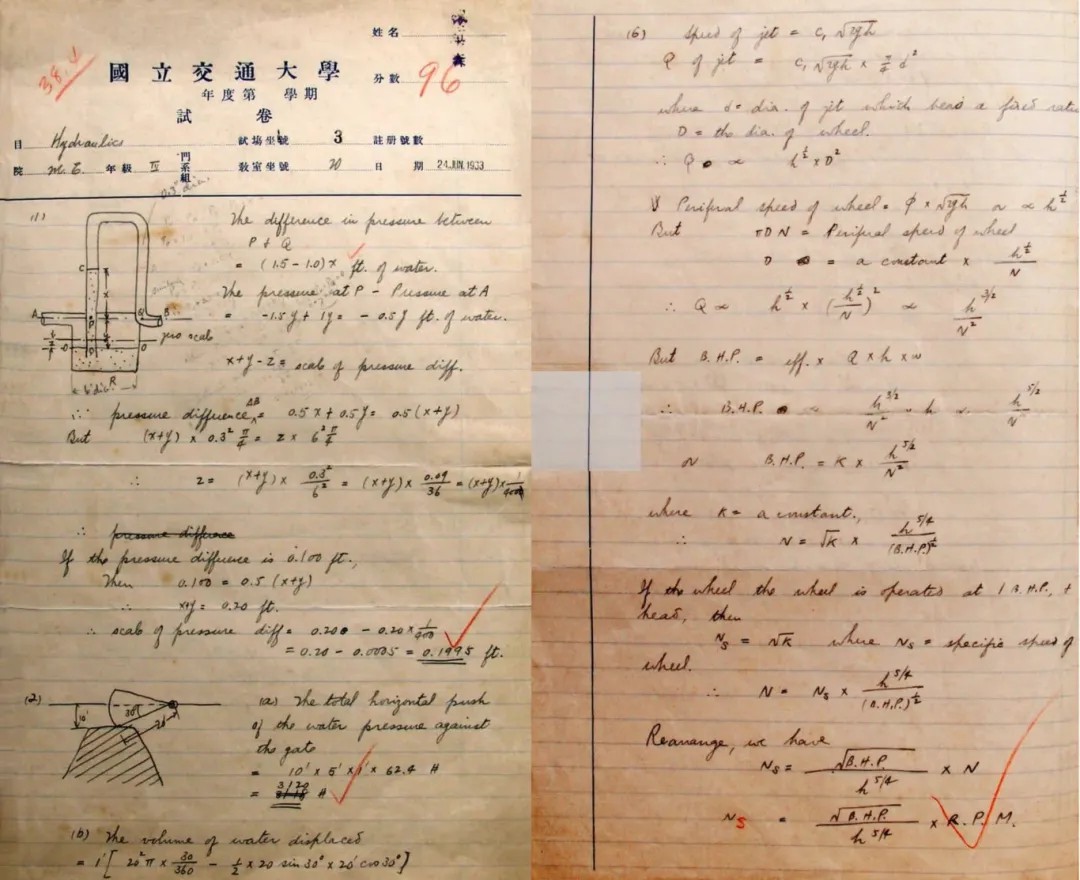 姓名
38.4
國立交通大學
分數 96
年度第 學期
試卷
目 Hydraulics 試場坐號 3 註册號數
院 M.E. 年級 IV 門系組 教室坐號 20 日期 24 JUN. 1933
0.3" dia.
(1)
The difference in pressure between
P + Q
= (1.5 - 1.0)x ft. of water.
The pressure at P - Pressure at A
= -1.5y + 1y = -0.5y ft. of water.
C
x
A
P
Q
B
y
zero scale
z
O
D
O
R
6" dia.
x+y-z = scale of pressure diff.
∴ pressure difference AB = 0.5x + 0.5y = 0.5(x+y)
But (x+y) x 0.3² π/4 = z x 6² π/4
∴ z = (x+y) x 0.3²/6² = (x+y) x 0.09/36 = (x+y) x 1/400
∴ pressure difference
If the pressure difference is 0.100 ft.,
Then 0.100 = 0.5 (x+y)
∴ x+y = 0.20 ft.
∴ scale of pressure diff = 0.200 - 0.20 x 1/400
= 0.20 - 0.0005 = 0.1995 ft.
(2)
10'
30°
20'
(a) The total horizontal push
of the water pressure against
the gate
= 10' x 5' x 1' x 62.4 #
= 3120 #
(b) The volume of water displaced
= 1' [ 20² π x 30/360 - 1/2 x 20 sin 30° x 20' cos 30° ]
(6) Speed of jet = c, √2gh
Q of jet = c, √2gh x π/4 d²
where d = dia. of jet which bears a fixed ratio
D = the dia. of wheel.
∴ Q ∝ h^½ x D²
& Periferal speed of wheel = φ x √2gh or ∝ h^½
But πDN = Periferal speed of wheel
D = a constant x h^½/N
∴ Q ∝ h^½ x (h^½/N)² ∝ h^3/2/N²
But B.H.P. = eff. x Q x h x w
∴ B.H.P. ∝ h^3/2/N² x h ∝ h^5/2/N²
or B.H.P. = K x h^5/2/N²
where K = a constant,
∴ N = √K x h^5/4/(B.H.P.)^½
If the wheel the wheel is operated at 1 B.H.P., +
head, then
Ns = √K where Ns = specific speed of
wheel.
∴ N = Ns x h^5/4/(B.H.P.)^½
Rearrange, we have
Ns = √B.H.P./h^5/4 x N
Ns = √B.H.P./h^5/4 x R.P.M.